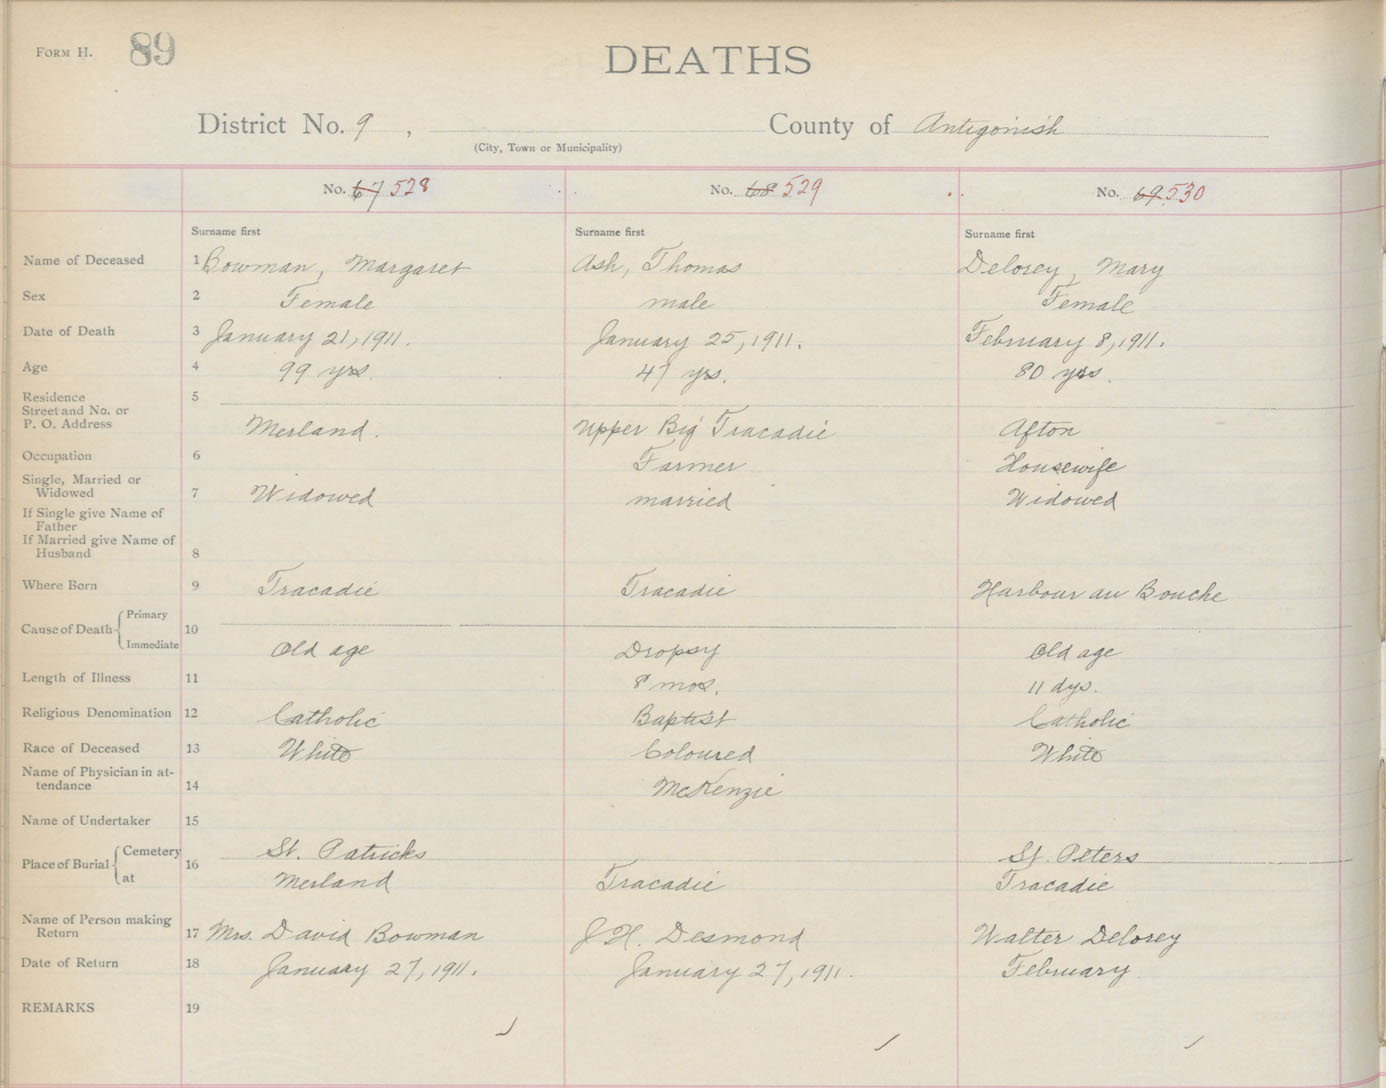 FORM H. 89 DEATHS
District No. 9 , County of Antigonish
(City, Town or Municipality)
No. 67 528 No. 68 529 No. 69 530
Surname first Surname first Surname first
Name of Deceased 1 Bowman, Margaret Ash, Thomas Delorey, Mary
Sex 2 Female male Female
Date of Death 3 January 21, 1911. January 25, 1911. February 8, 1911.
Age 4 99 yrs. 47 yrs. 80 yrs.
Residence 5
Street and No. or
P. O. Address Merland. Upper Big Tracadie Afton
Occupation 6 Farmer Housewife
Single, Married or
Widowed 7 Widowed married Widowed
If Single give Name of
Father
If Married give Name of
Husband 8
Where Born 9 Tracadie Tracadie Harbour au Bouche
Primary
Cause of Death 10
Immediate Old age Dropsy Old age
Length of Illness 11 8 mos. 11 dys.
Religious Denomination 12 Catholic Baptist Catholic
Race of Deceased 13 White Coloured White
Name of Physician in at-
tendance 14 McKenzie
Name of Undertaker 15
Cemetery St. Patricks St. Peters
Place of Burial 16
at Merland Tracadie Tracadie
Name of Person making
Return 17 Mrs. David Bowman J H. Desmond Walter Delorey
Date of Return 18 January 27, 1911. January 27, 1911. February.
REMARKS 19